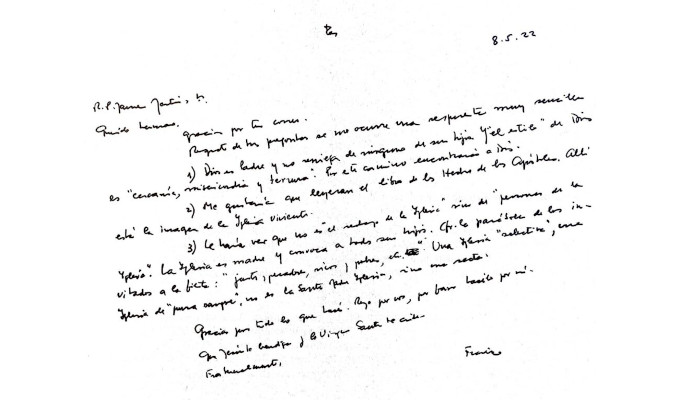 8.5.22
R.P. James Martin, sj.
Querido hermano,
gracias por tu correo.
Respecto de tus preguntas se me ocurre una respuesta muy sencilla
1) Dios es Padre y no reniega de ninguno de sus hijos. Y "el estilo" de Dios
es "cercanía, misericordia y ternura". Por este camino encontrarás a Dios.
2) Me gustaría que leyeran el libro de los Hechos de los Apóstoles. Allí
está la imagen de la Iglesia viviente.
3) Le haría ver que no es "el rechazo de la Iglesia" sino de "personas de la
Iglesia". La Iglesia es madre y convoca a todos sus hijos. Cfr. la parábola de los in-
vitados a la fiesta: "justos, pecadores, ricos y pobres, etc." Una Iglesia "selectiva", una
Iglesia de "pura sangre", no es la Santa Madre Iglesia, sino una secta.
Gracias por todo lo que hacés. Rezo por vos, por favor hacelo por mí.
Que Jesús te bendiga y la Virgen Santa te cuide.
Fraternalmente,